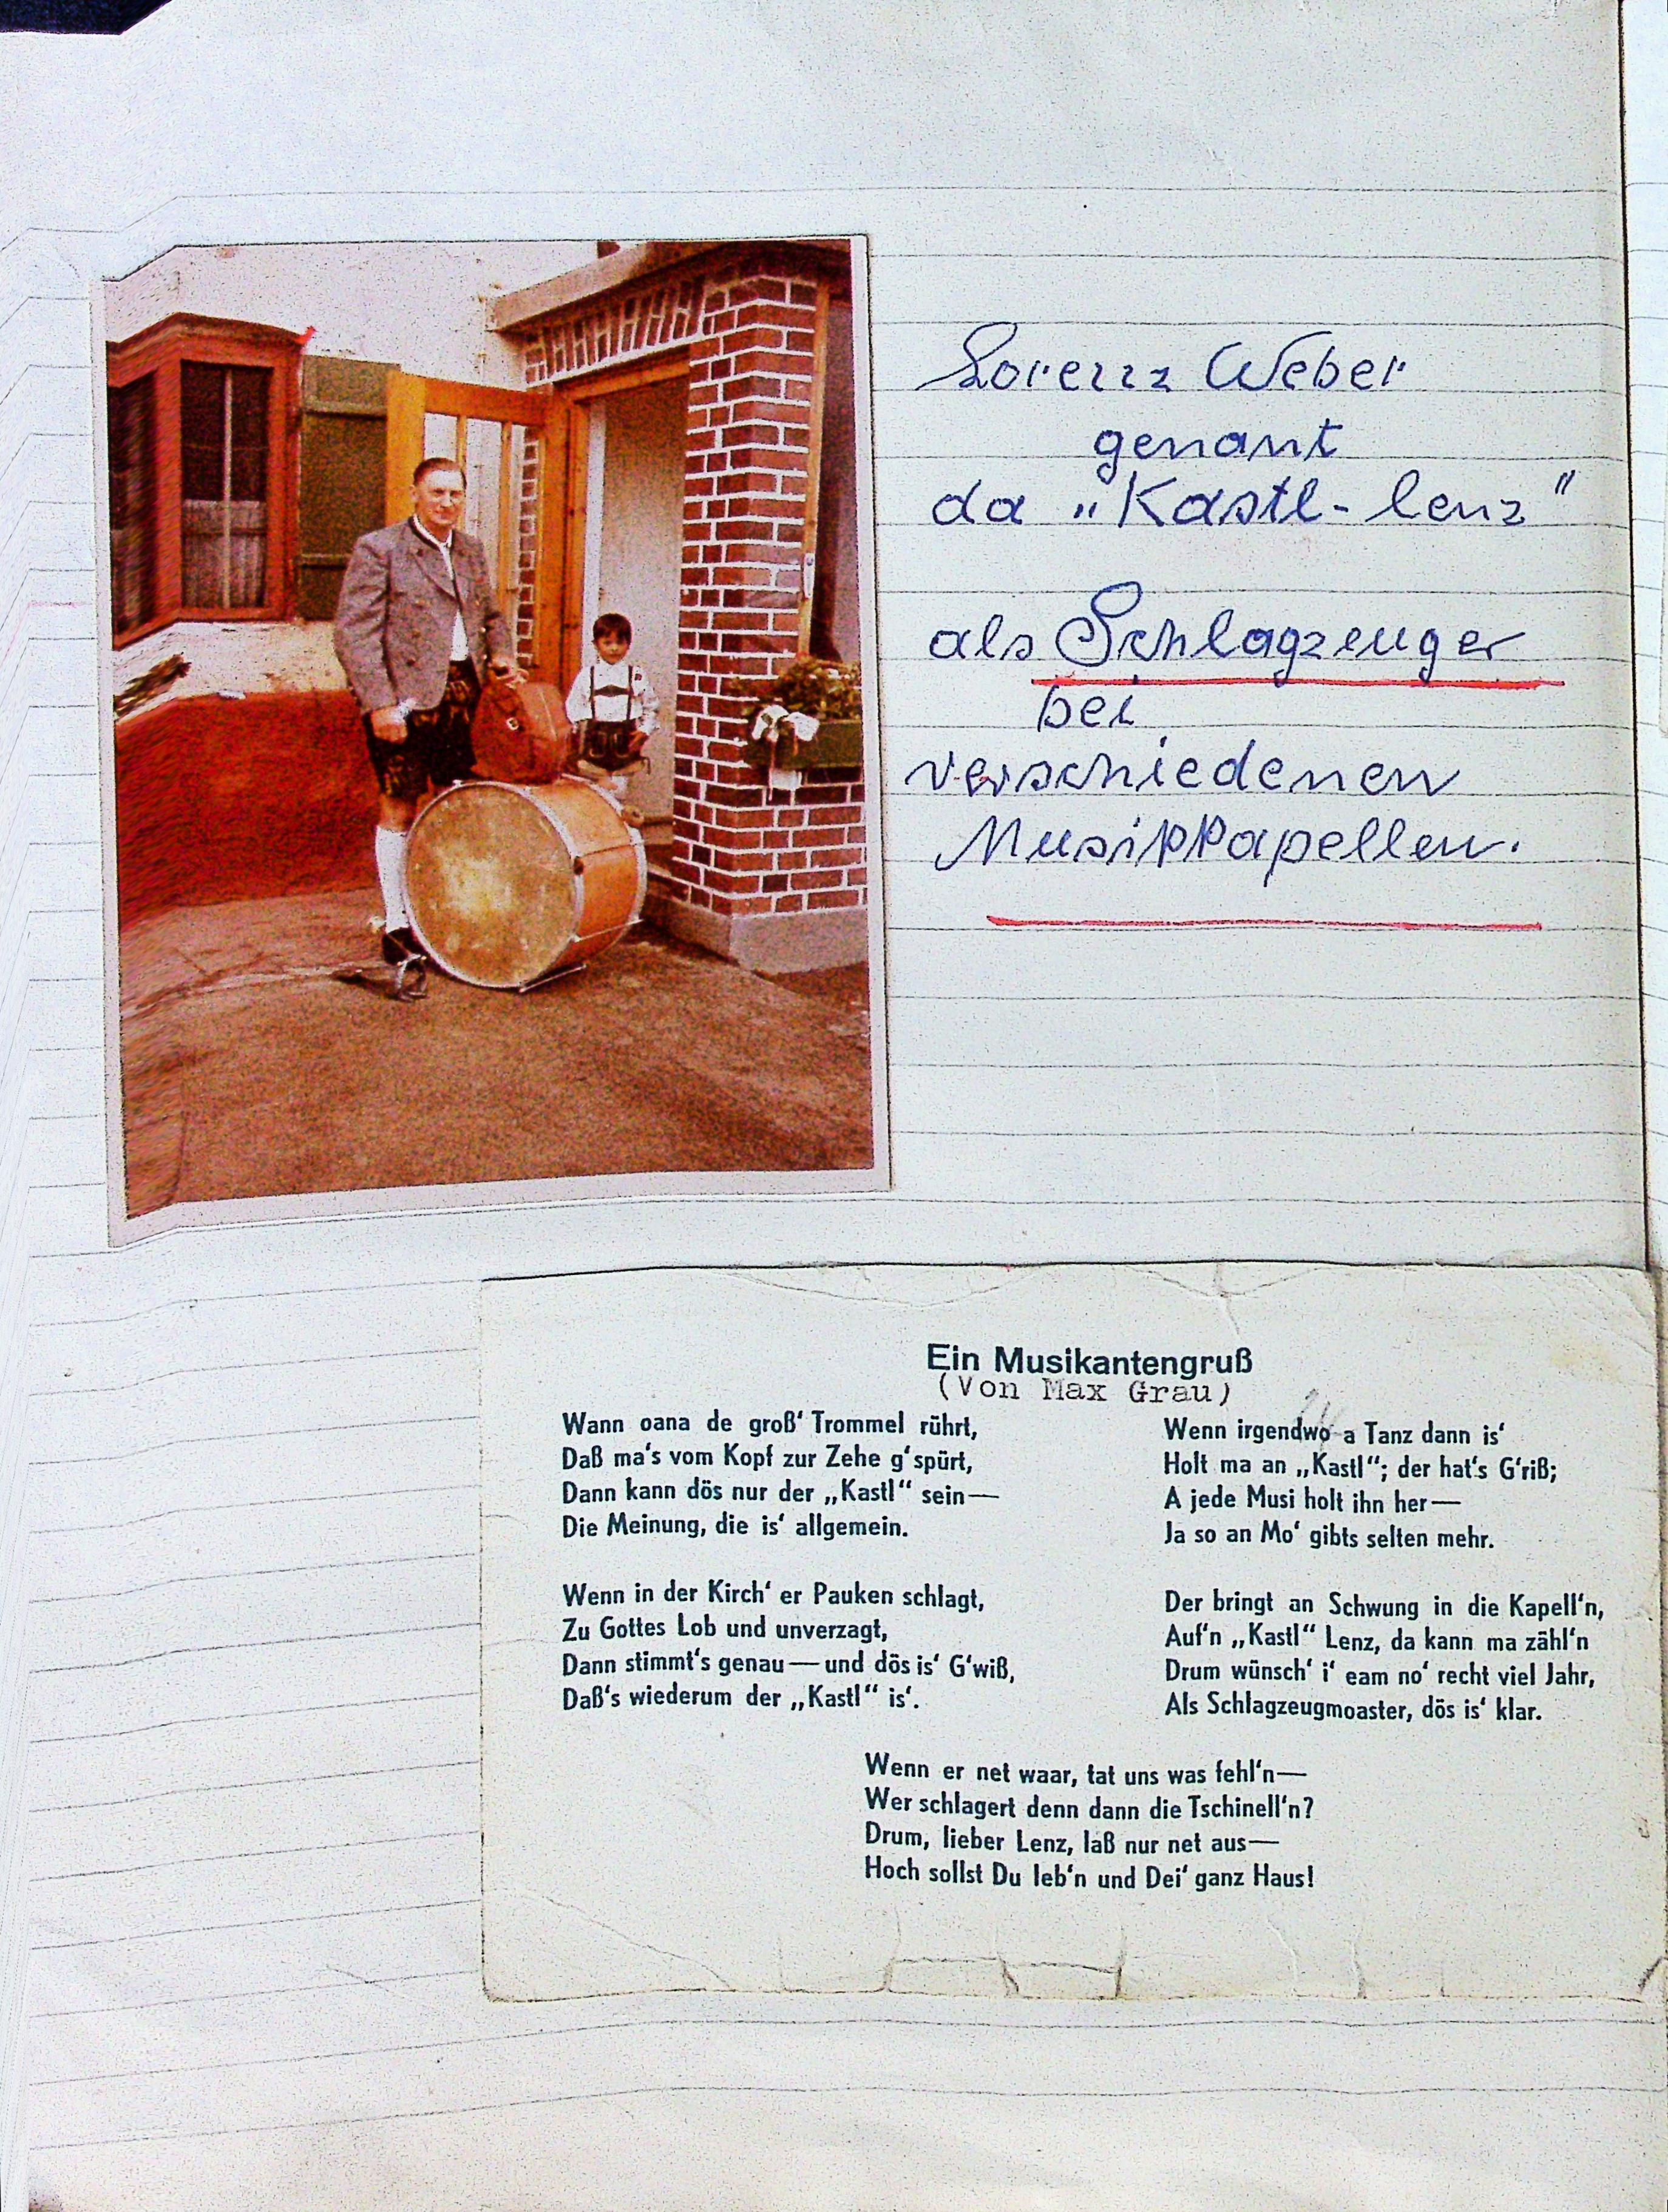 Lorenz Weber
genant
da „Kastl-lenz"
als Schlagzeuger
bei
verschiedenen
Musikkapellen.
Ein Musikantengruß
(Von Max Grau)
Wann oana de groß' Trommel rührt,
Daß ma's vom Kopf zur Zehe g'spürt,
Dann kann dös nur der „Kastl" sein—
Die Meinung, die is' allgemein.
Wenn in der Kirch' er Pauken schlagt,
Zu Gottes Lob und unverzagt,
Dann stimmt's genau—und dös is' G'wiß,
Daß's wiederum der „Kastl" is'.
Wenn irgendwo a Tanz dann is'
Holt ma an „Kastl"; der hat's G'riß;
A jede Musi holt ihn her—
Ja so an Mo' gibts selten mehr.
Der bringt an Schwung in die Kapell'n,
Auf'n „Kastl" Lenz, da kann ma zähl'n
Drum wünsch' i' eam no' recht viel Jahr,
Als Schlagzeugmoaster, dös is' klar.
Wenn er net waar, tat uns was fehl'n—
Wer schlagert denn dann die Tschinell'n?
Drum, lieber Lenz, laß nur net aus—
Hoch sollst Du leb'n und Dei' ganz Haus!